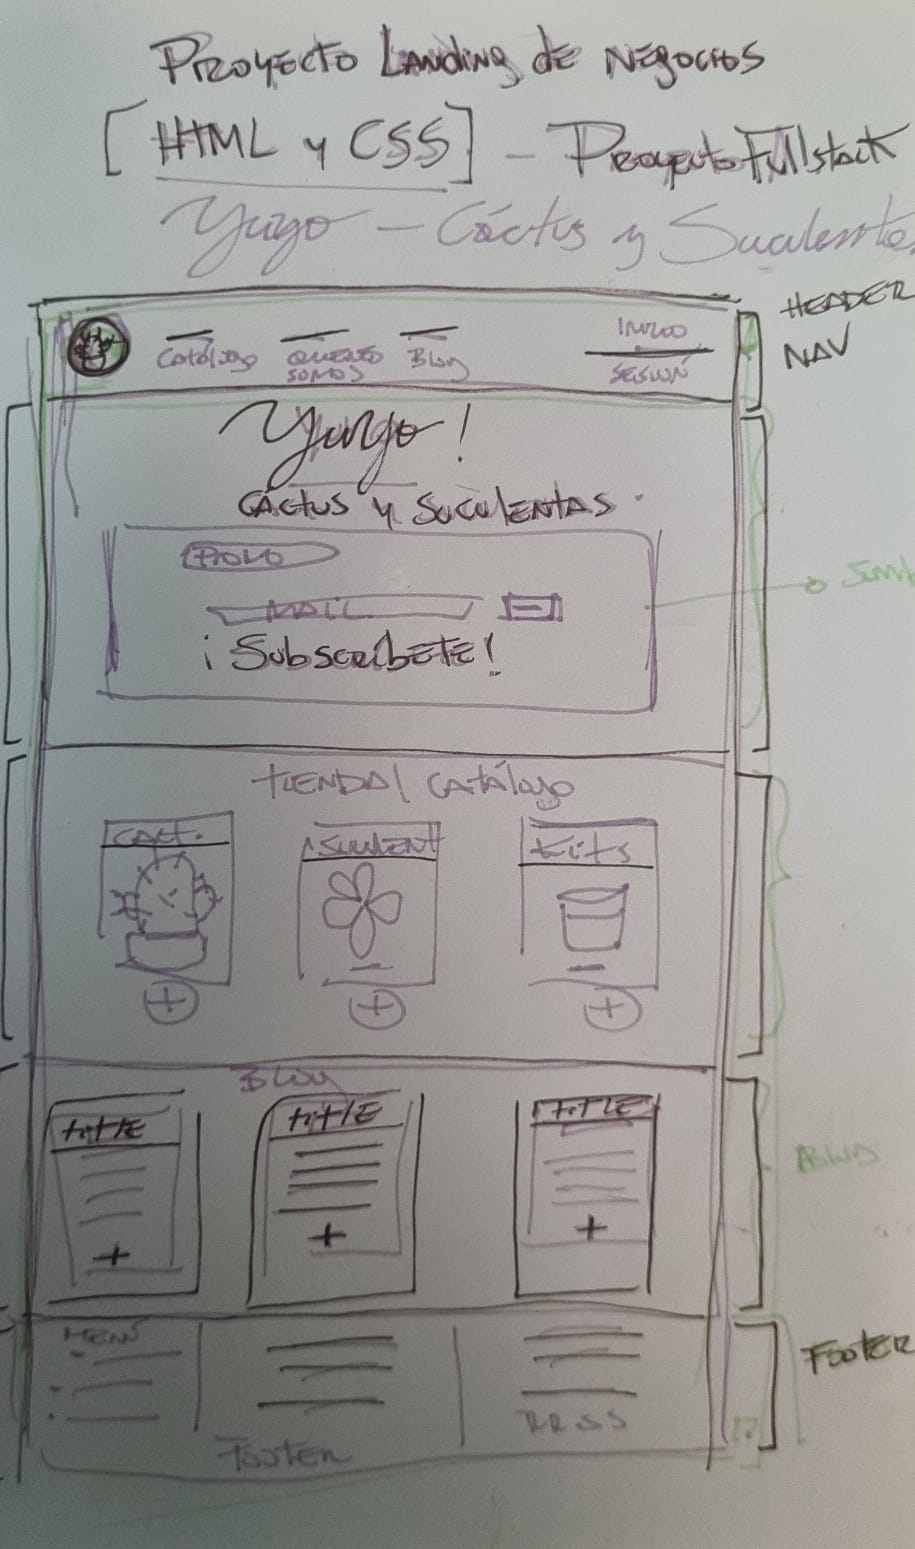 Proyecto Landing de Negocios
[HTML y CSS] - Proyecto Fullstack
Yuyo - Cáctus y Suculentas
HEADER
NAV
Catálogo
QUIENES SOMOS
Blog
INICIO SESIÓN
Yuyo!
CACTUS y SUCULENTAS
PROMO
MAIL
¡Subscríbete!
TIENDA/ CATÁlogo
CACT.
Kits
Blog
titlE
titLE
titLE
MENÚ
RRSS
Footer
FOOTER